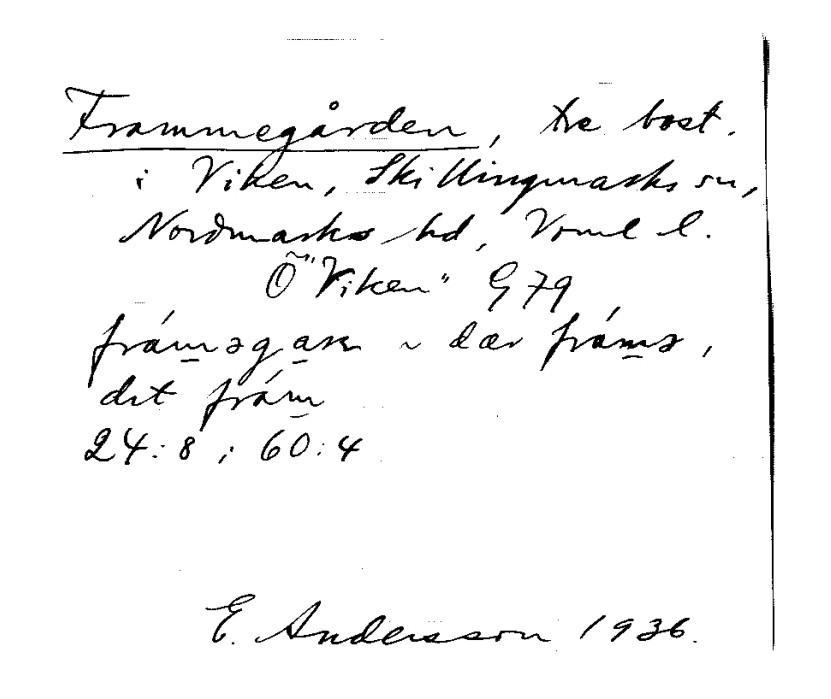 Frammegården, tre bost.
i Viken, Skillingmarks sn,
Nordmarks hd, Värml l.
Õ "Viken" G79
frám̲əga̲ṛn ~ där frám̲ə,
dit frám̲
24:8; 60:4
E. Andersson 1936.